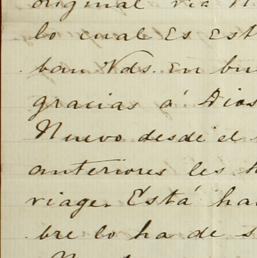 original via N
lo cual Es Est
ban Vds. en bu
gracias á Dios
Nuevo desde el
anteriores les h
viage. Está ha
bre lo ha de s